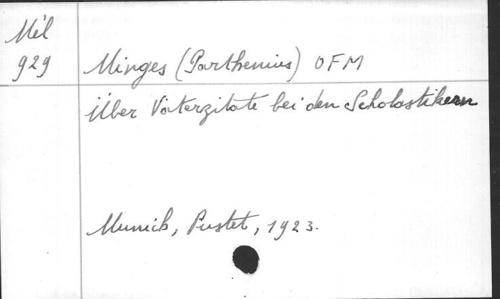 Mél
929
Minges (Parthenius) OFM
Über Väterzitate bei den Scholastikern
Munich, Pustet, 1923.